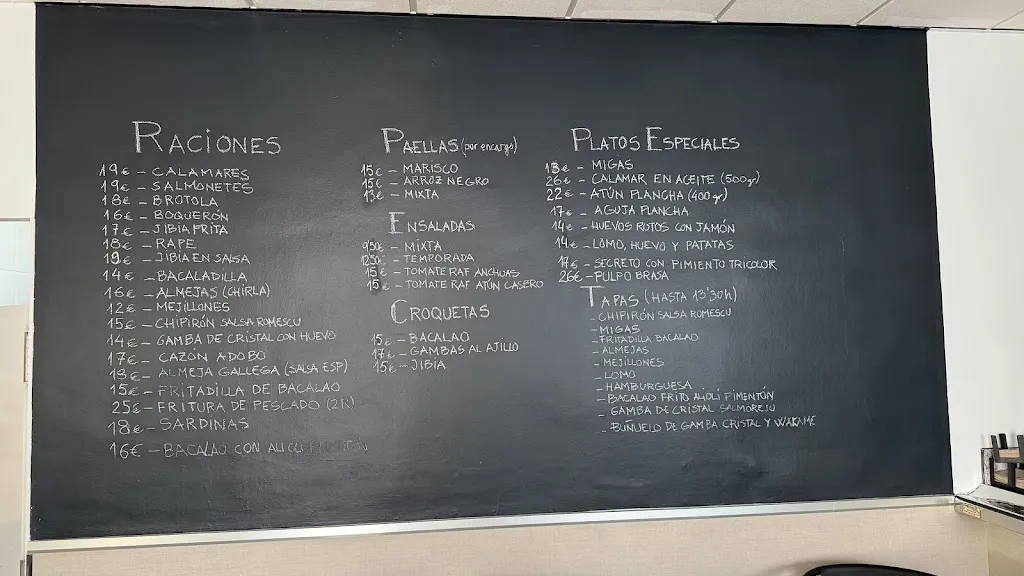 RACIONES
19€ - CALAMARES
19€ - SALMONETES
18€ - BROTOLA
16€ - BOQUERÓN
17€ - JIBIA FRITA
18€ - RAPE
19€ - JIBIA EN SALSA
14€ - BACALADILLA
16€ - ALMEJAS (CHIRLA)
12€ - MEJILLONES
15€ - CHIPIRÓN SALSA ROMESCU
14€ - GAMBA DE CRISTAL CON HUEVO
17€ - CAZÓN ADOBO
19€ - ALMEJA GALLEGA (SALSA ESP)
15€ - FRITADILLA DE BACALAO
25€ - FRITURA DE PESCADO (2R)
18€ - SARDINAS
16€ - BACALAO CON
PAELLAS (por encargo)
15€ - MARISCO
15€ - ARROZ NEGRO
13€ - MIXTA
ENSALADAS
9,50€ - MIXTA
12,50€ - TEMPORADA
15€ - TOMATE RAF ANCHOAS
15€ - TOMATE RAF ATÚN CASERO
CROQUETAS
15€ - BACALAO
17€ - GAMBAS AL AJILLO
15€ - JIBIA
PLATOS ESPECIALES
13€ - MIGAS
26€ - CALAMAR EN ACEITE (500gr)
22€ - ATÚN PLANCHA (400gr)
17€ - AGUJA PLANCHA
14€ - HUEVOS ROTOS CON JAMÓN
14€ - LOMO, HUEVO Y PATATAS
17€ - SECRETO CON PIMIENTO TRICOLOR
26€ - PULPO BRASA
TAPAS (HASTA 13'30h)
- CHIPIRÓN SALSA ROMESCU
- MIGAS
- FRITADILLA BACALAO
- ALMEJAS
- MEJILLONES
- LOMO
- HAMBURGUESA
- BACALAO FRITO ALIOLI PIMENTÓN
- GAMBA DE CRISTAL SALMOREJO
- BUÑUELO DE GAMBA CRISTAL Y WAKAME